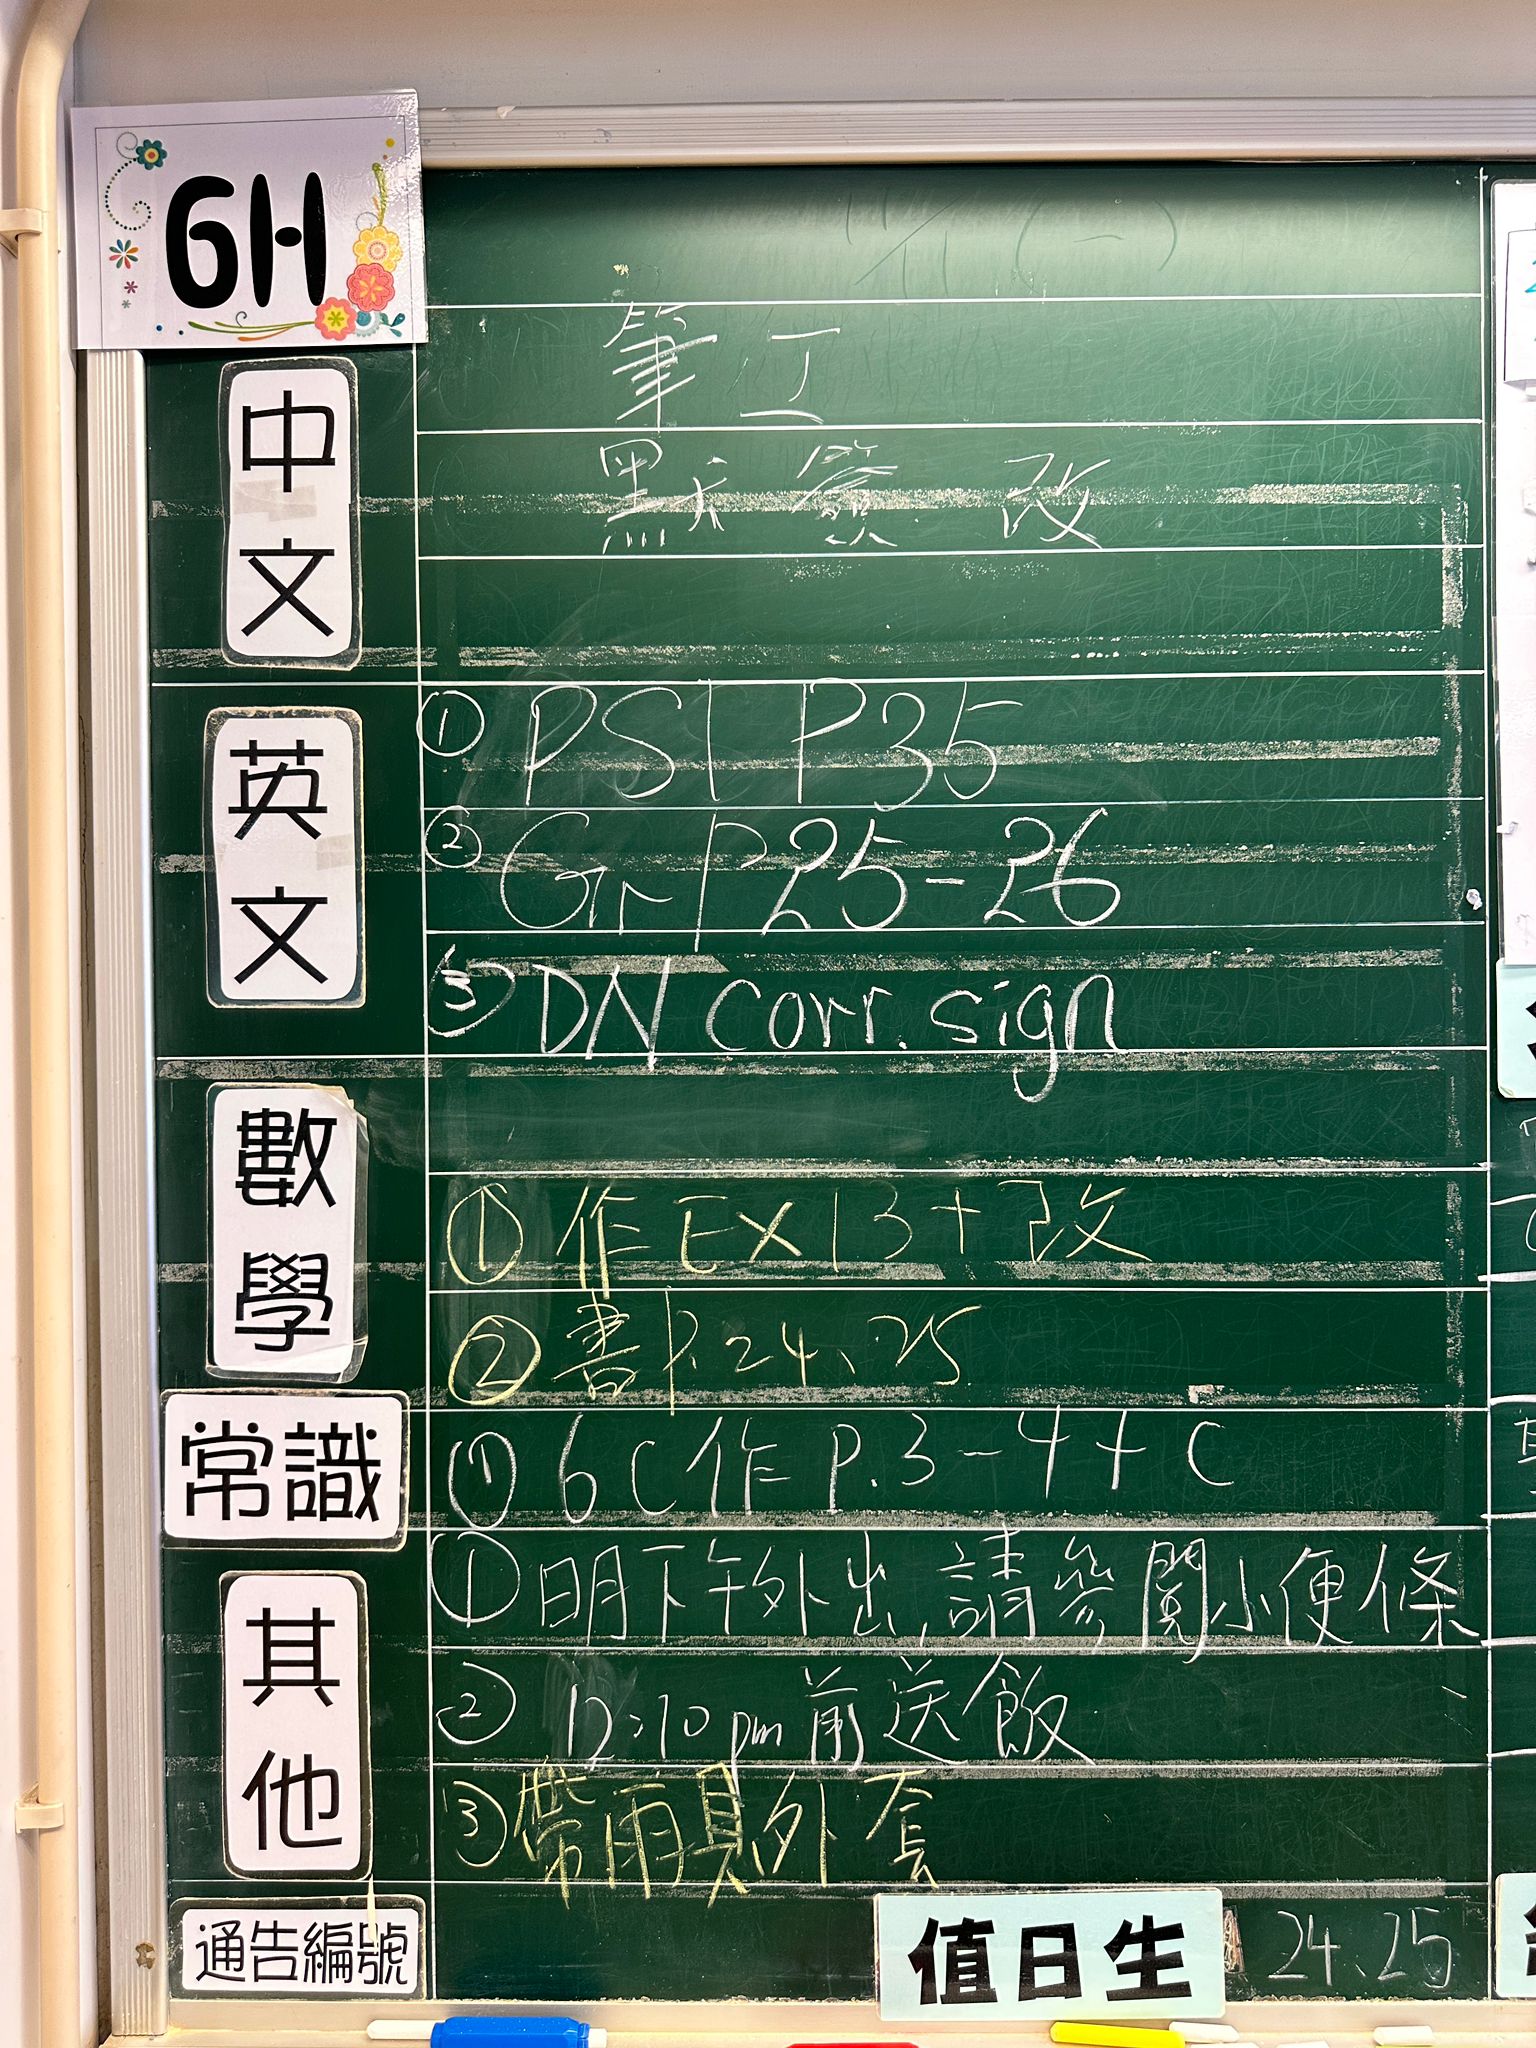 6H
中文
筆工
默 篇 改
英文
① PS1 P35
② Gr P25-26
③ DN corr. sign
數學
① 作EX13+改
② 書P.24、25
常識
① 6C作P.3-4+C
其他
① 明下午外出,請參閱小便條
② 12:10pm前送飯
③ 帶雨具外套
通告編號
值日生 24、25